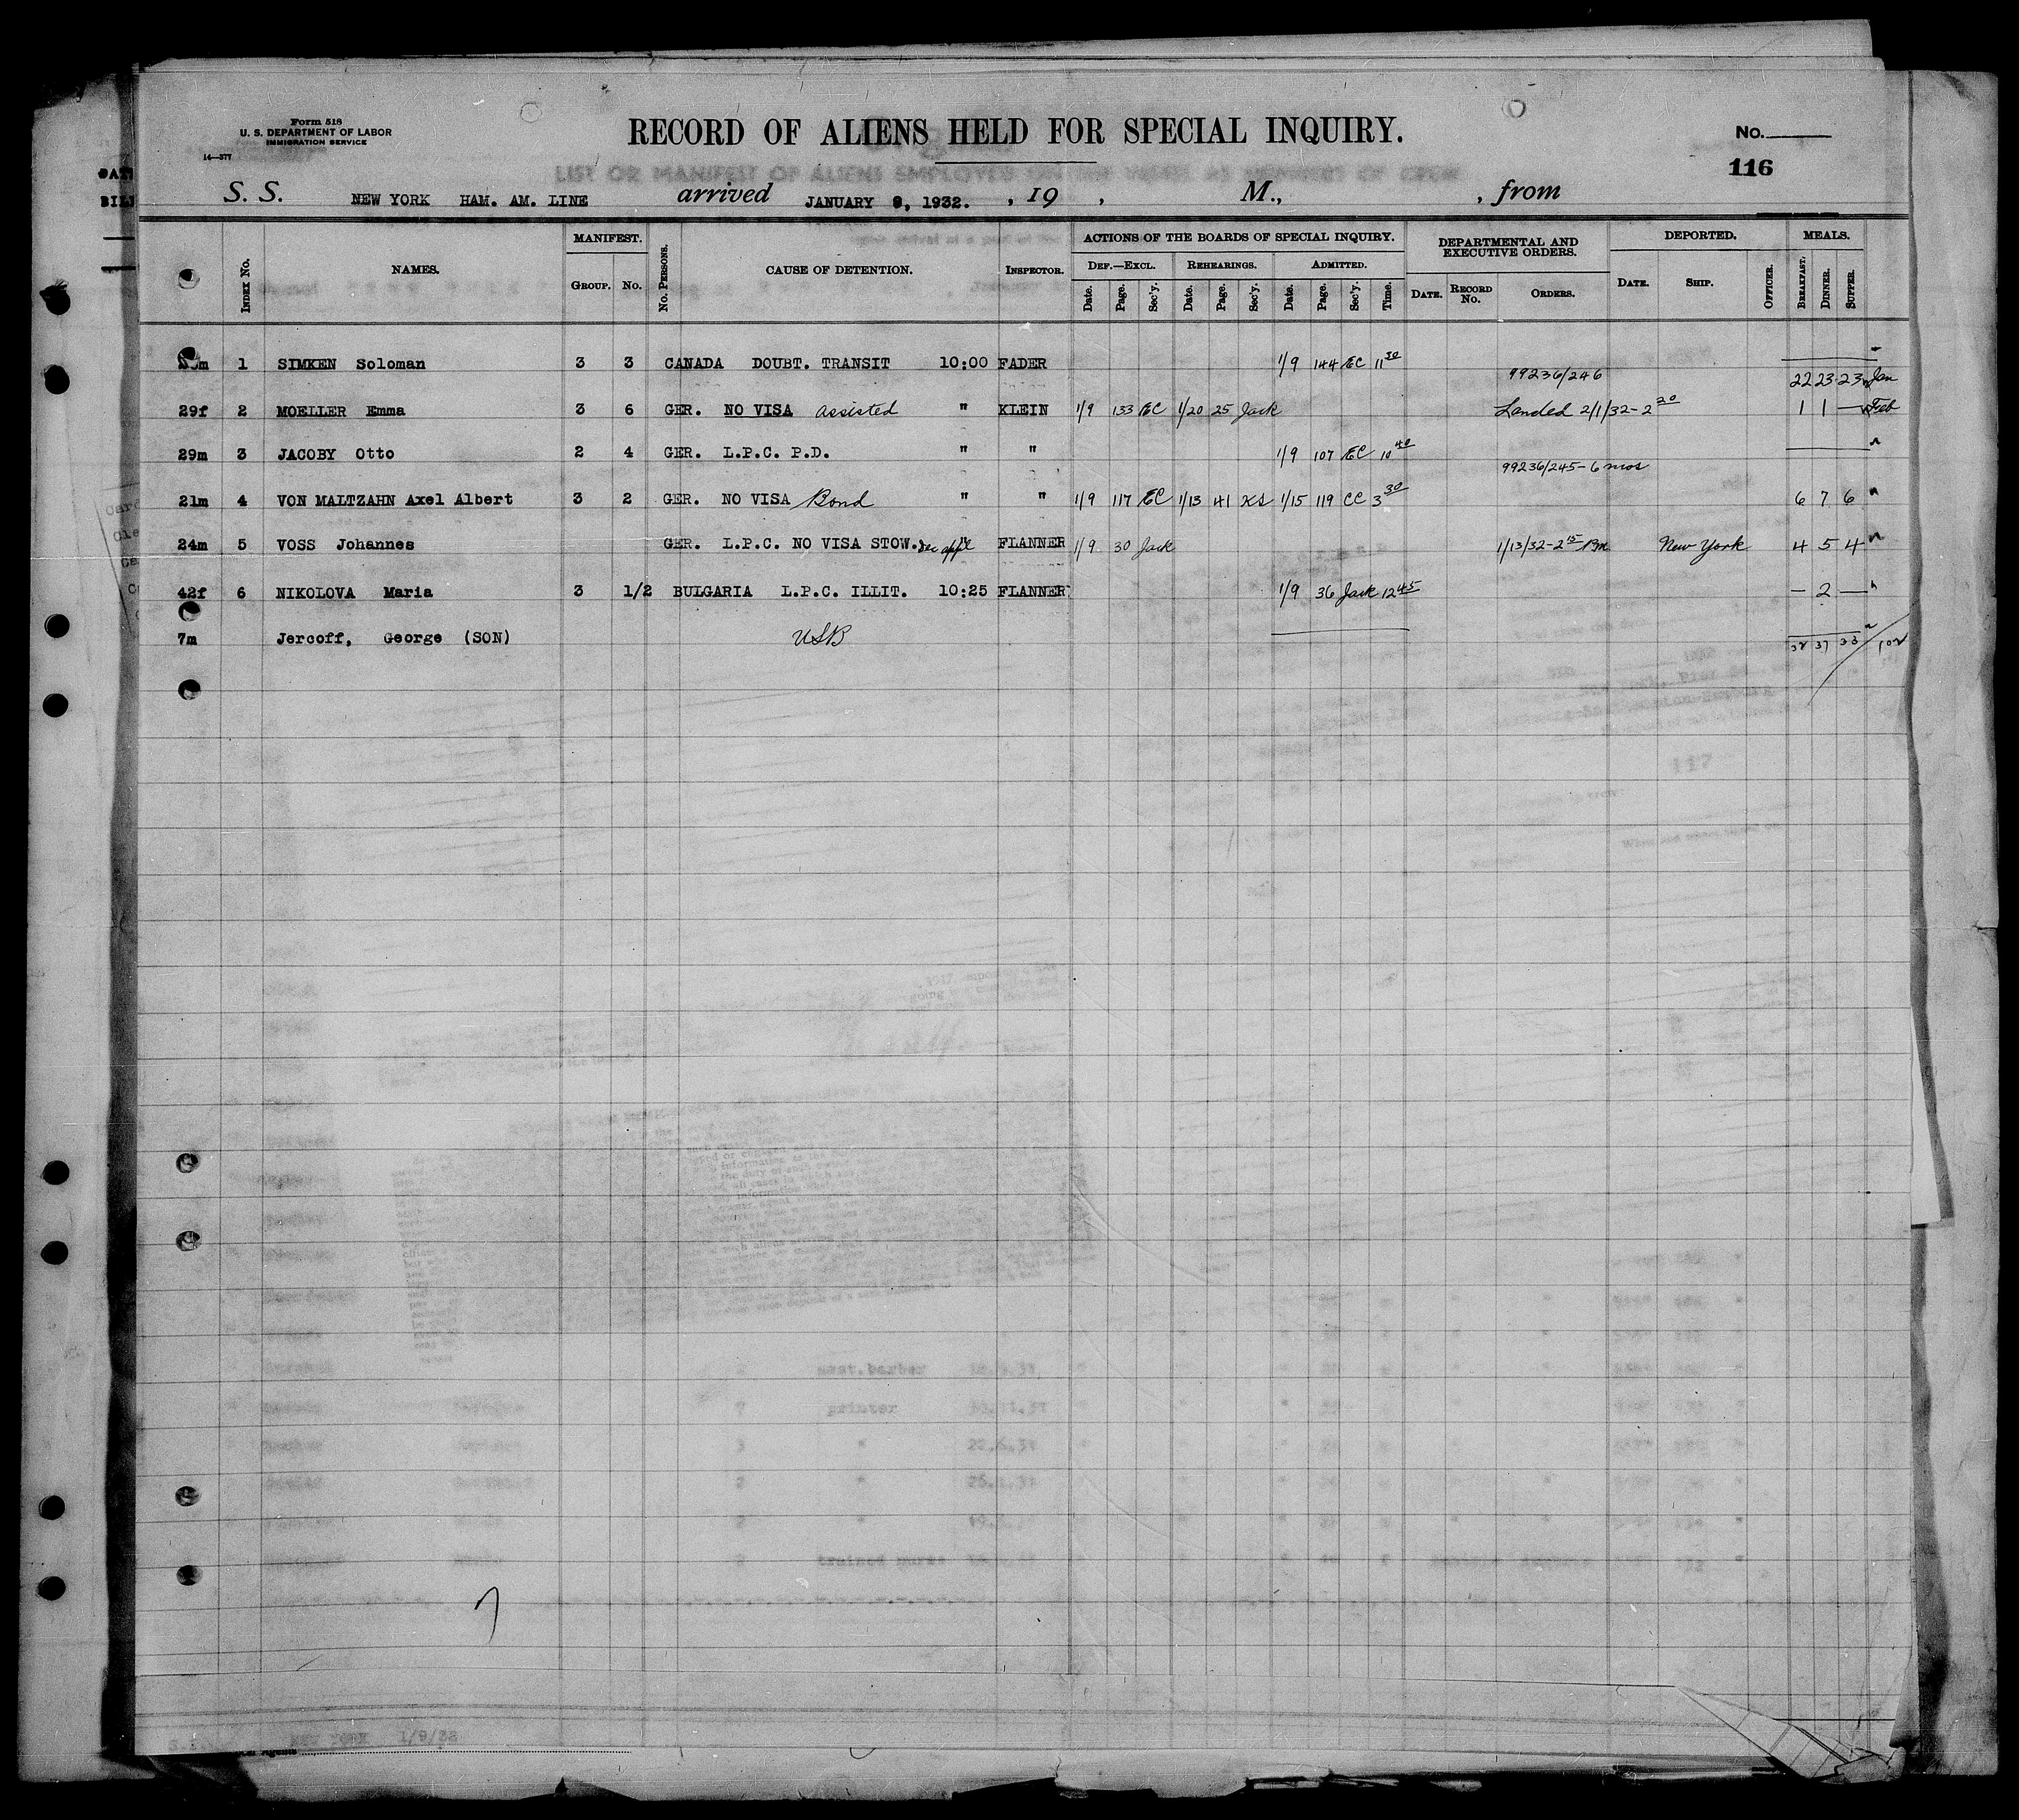 Form 518
U. S. DEPARTMENT OF LABOR
IMMIGRATION SERVICE
14—377
RECORD OF ALIENS HELD FOR SPECIAL INQUIRY.
No.
116
LIST OR MANIFEST OF ALIENS EMPLOYED ON THE VESSEL AS MEMBERS OF CREW
S. S. NEW YORK HAM. AM. LINE arrived JANUARY 9, 1932. , 19 , M., , from
MANIFEST. ACTIONS OF THE BOARDS OF SPECIAL INQUIRY. DEPARTMENTAL AND EXECUTIVE ORDERS. DEPORTED. MEALS.
DEF.—EXCL. REHEARINGS. ADMITTED.
INDEX No. NAMES. GROUP. No. No. PERSONS. CAUSE OF DETENTION. INSPECTOR. Date. Page. Sec'y. Date. Page. Sec'y. Date. Page. Sec'y. Time. DATE. RECORD No. ORDERS. DATE. SHIP. OFFICER. BREAKFAST. DINNER. SUPPER.
1 SIMKEN Soloman 3 3 CANADA DOUBT. TRANSIT 10:00 FADER 1/9 144 EC 11 30
99236/246 22 23 23 Jan
29f 2 MOELLER Emma 3 6 GER. NO VISA assisted " KLEIN 1/9 133 EC 1/20 25 Jack Landed 2/1/32-2 20 1 1 — Feb
29m 3 JACOBY Otto 2 4 GER. L.P.C. P.D. " " 1/9 107 EC 10 40
99236/245-6 mos
21m 4 VON MALTZAHN Axel Albert 3 2 GER. NO VISA Bond " " 1/9 117 EC 1/13 41 KS 1/15 119 CC 3 30 6 7 6
24m 5 VOSS Johannes GER. L.P.C. NO VISA STOW. " FLANNER 1/9 30 Jack 1/13/32-2 15 Pm New York 4 5 4
42f 6 NIKOLOVA Maria 3 1/2 BULGARIA L.P.C. ILLIT. 10:25 FLANNER 1/9 36 Jack 12 45 — 2 —
7m Jercoff, George (SON) USB
37 33
117
asst.barber
printer
trained nurse
1/9/32